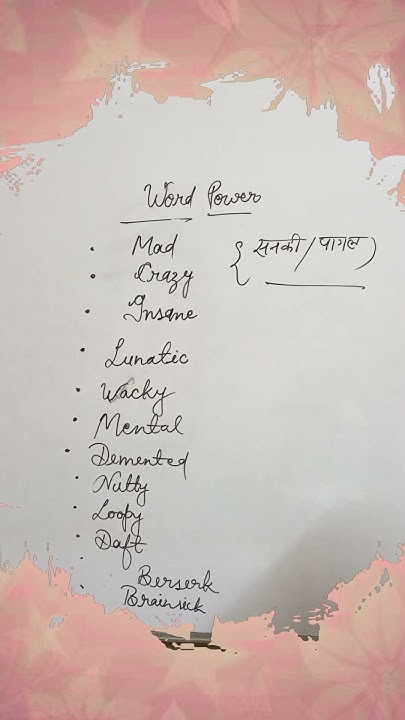 Word Power
Mad { सनकी / पागल )
Crazy
Insane
Lunatic
Wacky
Mental
Demented
Nutty
Loopy
Daft
Berserk
Brainsick